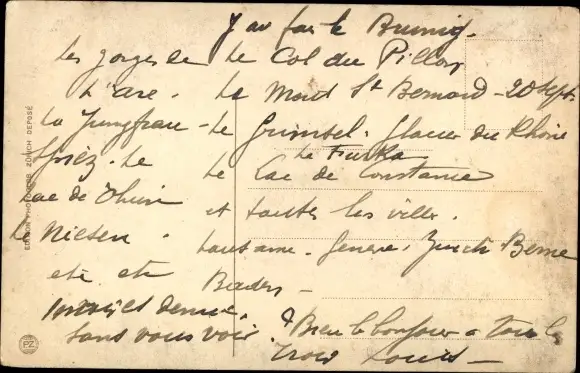 J'ai fait le Brunig.
Les gorges de
L'are. La
La Jungfrau -
Spiez. Le
Lac de Thun
Le Niesen.
etc etc
mois et demi.
sans vous voir.
Le Col du Pillon
Le Mont St Bernard - 20 sept.
Le Grimsel. Glacier du Rhône
La Furka
Le Lac de Constance
et toutes les villes.
Lausanne. Genève, Zurich Berne
Baden -
Bien le bonjour a tous les
trois Louis -
EDITION PHOTOGLOB ZÜRICH DEPOSÉ
PZ